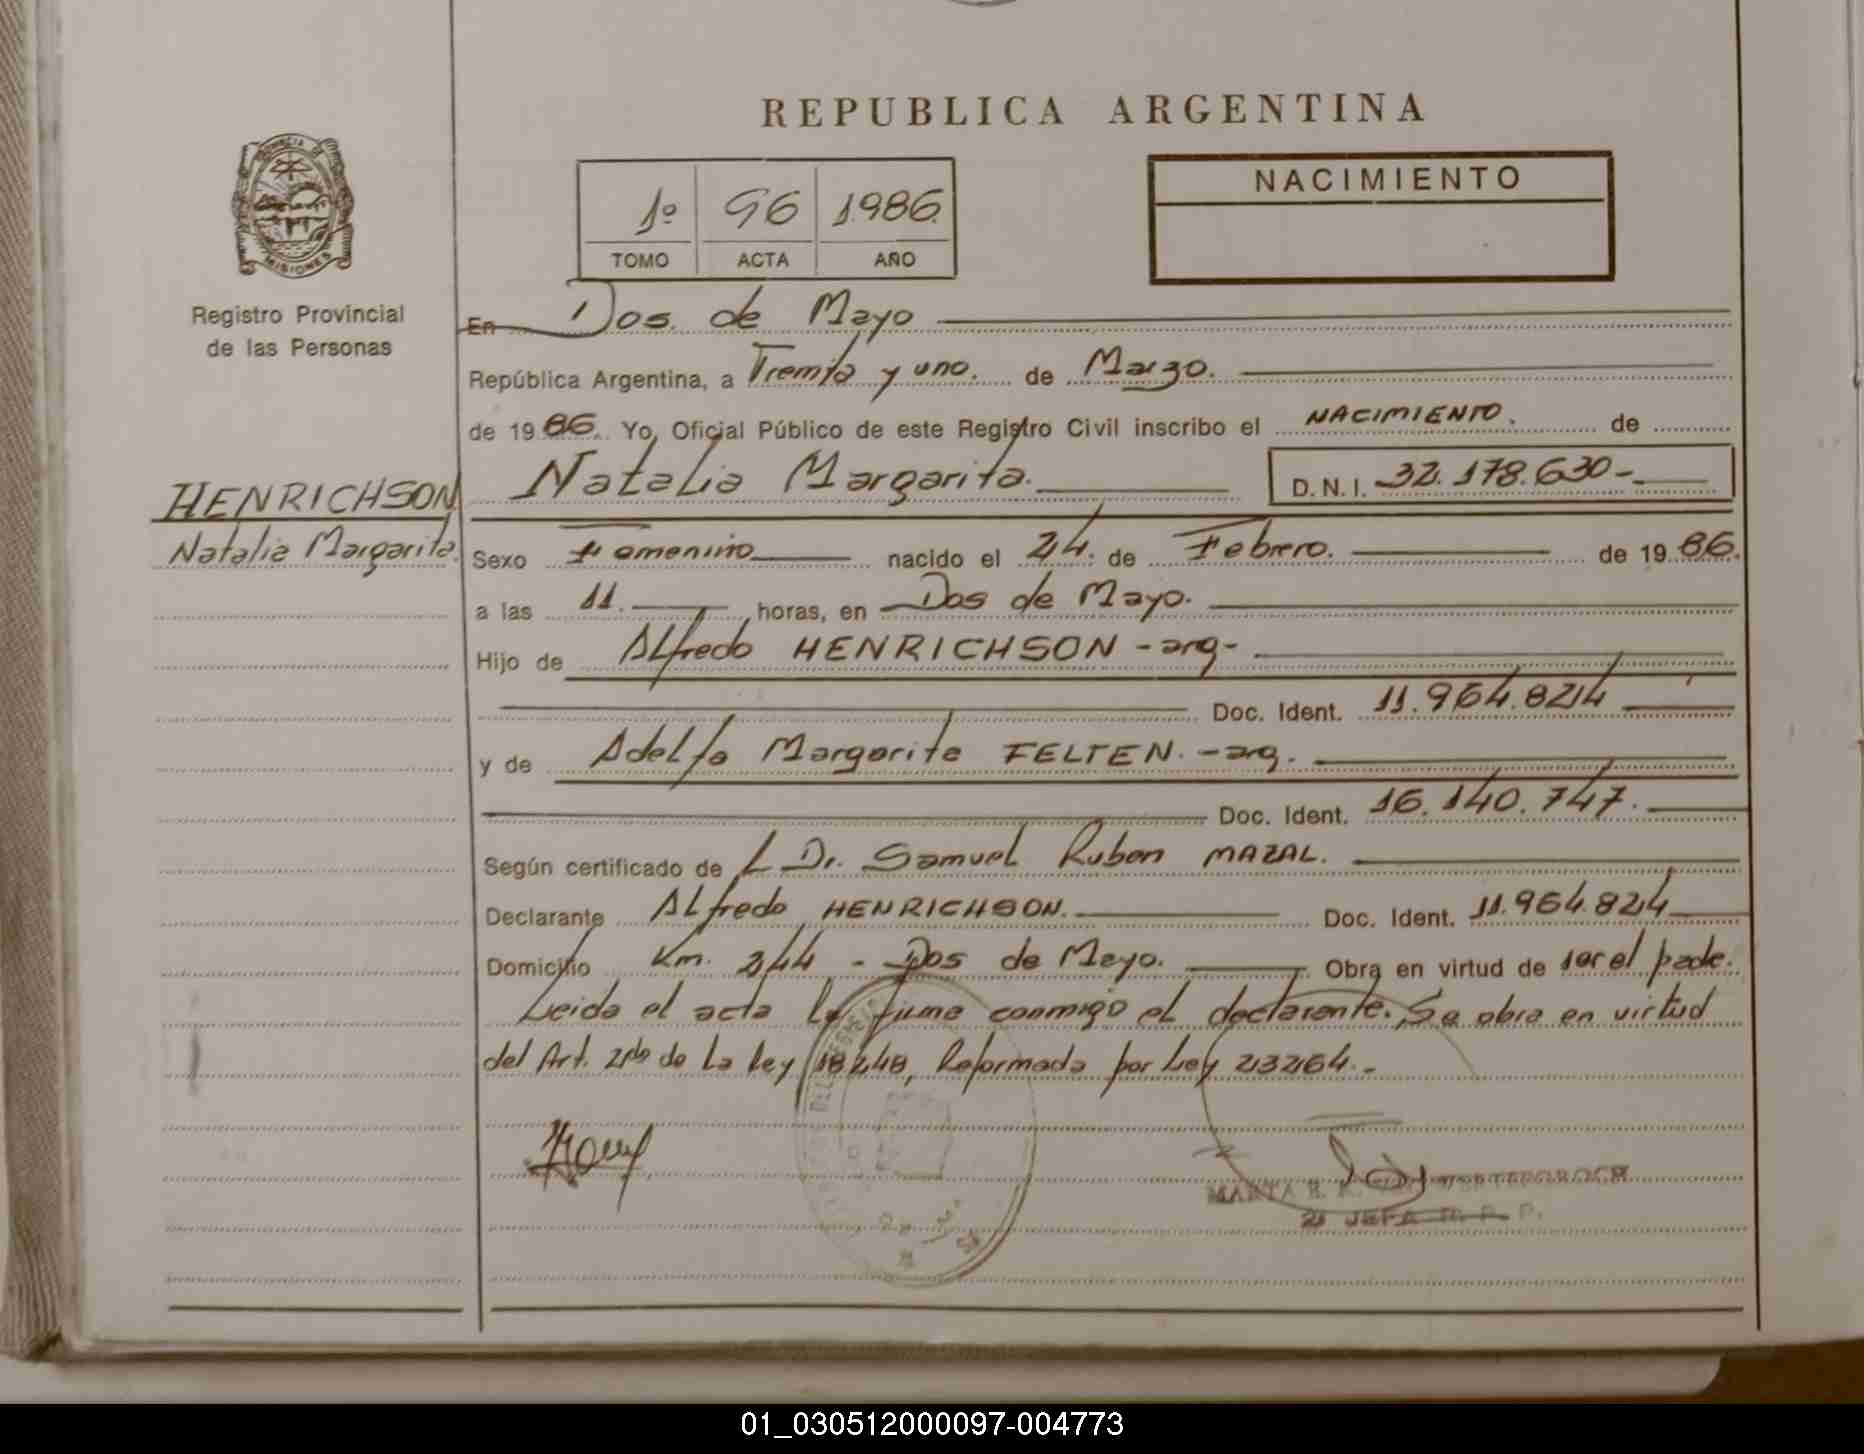 REPUBLICA ARGENTINA
PROVINCIA DE
MISIONES
Registro Provincial
de las Personas
1º 96 1986.
TOMO ACTA AÑO
NACIMIENTO
En Dos de Mayo
República Argentina, a Treinta y uno. de Marzo.
de 1986. Yo, Oficial Público de este Registro Civil inscribo el NACIMIENTO. de
HENRICHSON
Natalia Margarita.
Natalia Margarita. D.N.I. 32.178.630-
Sexo Femenino nacido el 24. de Febrero. de 1986.
a las 11. horas, en Dos de Mayo.
Hijo de Alfredo HENRICHSON -arg-
Doc. Ident. 11.964.824
y de Adelfa Margarita FELTEN. -arg.
Doc. Ident. 16.140.747.
Según certificado de L Dr. Samuel Ruben MAZAL.
Declarante Alfredo HENRICHSON. Doc. Ident. 11.964.824
Domicilio Km. 244 - Dos de Mayo. Obra en virtud de ser el padre.
Leida el acta la firma conmigo el declarante. Se obra en virtud
del Art. de la Ley 18248, Reformada por Ley 23264.-
MARTA
JEFA R. P. P.
01_030512000097-004773